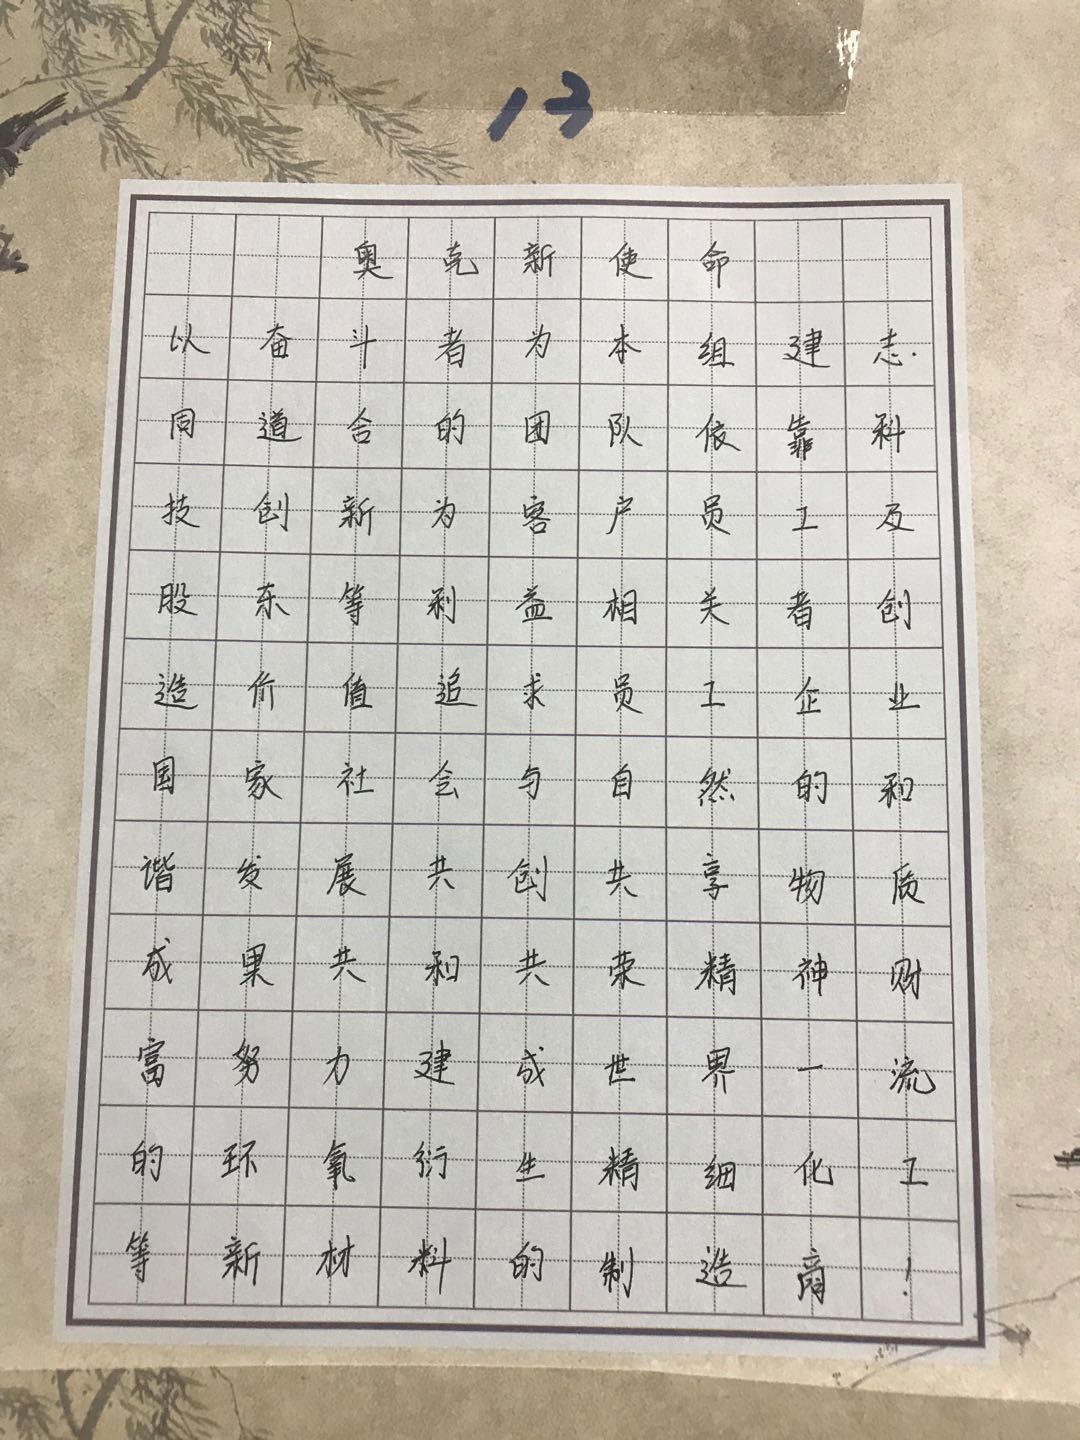 13
奥克新使命
以奋斗者为本组建志
同道合的团队依靠科
技创新为客户员工及
股东等利益相关者创
造价值追求员工企业
国家社会与自然的和
谐发展共创共享物质
成果共和共荣精神财
富努力建成世界一流
的环氧衍生精细化工
等新材料的制造商!